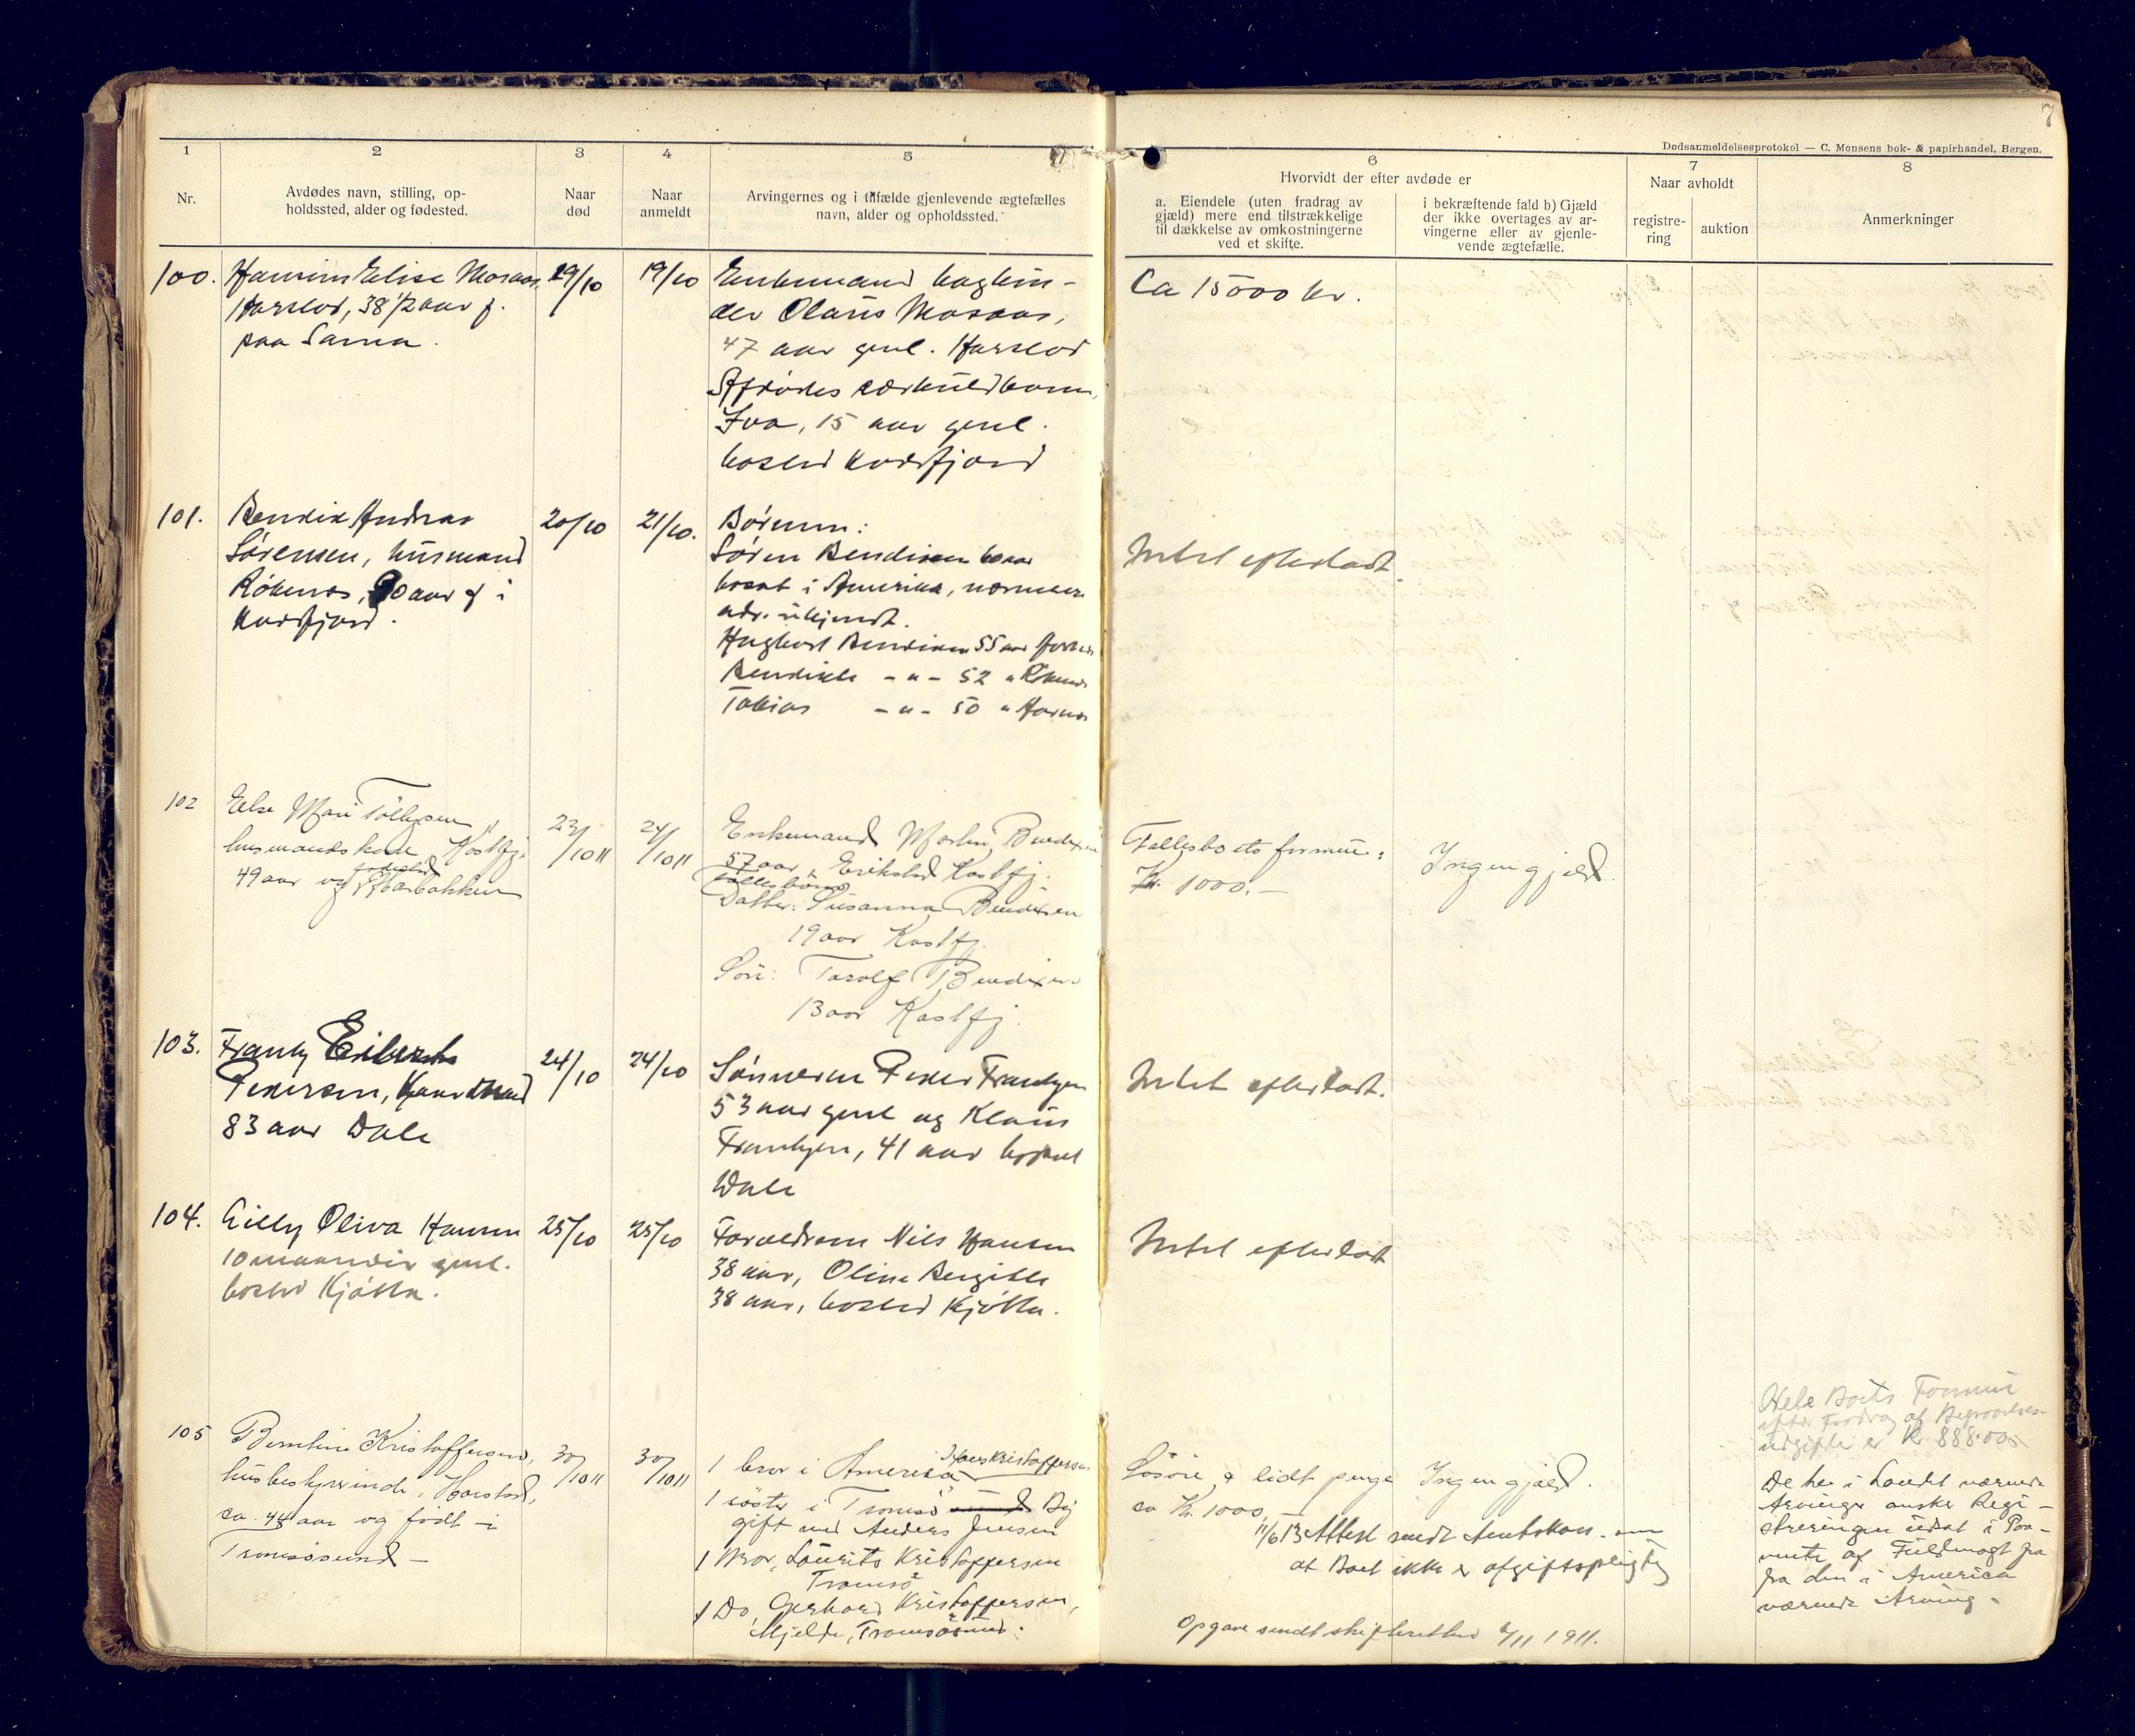 7
Dødsanmeldelsesprotokol — C. Monsens bok- & papirhandel, Bergen.
1 2 3 4 5 6 7 8
Nr.
Avdødes navn, stilling, op-
holdssted, alder og fødested.
Naar
død
Naar
anmeldt
Arvingernes og i tilfælde gjenlevende ægtefælles
navn, alder og opholdssted.
Hvorvidt der efter avdøde er
a. Eiendele (uten fradrag av
gjæld) mere end tilstrækkelige
til dækkelse av omkostningerne
ved et skifte.
i bekræftende fald b) Gjæld
der ikke overtages av ar-
vingerne eller av gjenle-
vende ægtefælle.
Naar avholdt
registre-
ring
auktion
Anmerkninger
100.
Elise Mosaas,
Harstad, 38 1/2 aar f.
paa Senja.
19/10
19/10
Enkemand
Olaus Mosaas,
47 aar gml. Harstad
Afdødes særkuldbarn,
15 aar gml.
bosted Kvæfjord
Ca 15000 kr.
101.
Bendix Andreas
Sørensen, husmand
Røkenes, 90 aar f i
Kvæfjord.
20/10
21/10.
Børnene:
Søren Bendixen 60 aar
bosat i Amerika, nærmere
adr. ukjendt.
Hagbart Bendixen 55 aar
Bendikte -"- 52 " Røkenes
Tobias -"- 50 "
Intet efterladt.
102
Else Mari
husmandskone Kastfj.
49 aar og fødested
23/10 11
24/10 11
Enkemand Martin Bendixen
57 aar, Erikstad Kastfj.
Fællesbørn
Datter: Susanna Bendixen
19 aar Kastfj.
Søn: Tarolf Bendixen
13 aar Kastfj.
Fællesboets formue:
Kr. 1000.—
Ingen gjæld.
103.
Frants
Pedersen,
83 aar Dale
24/10
24/10
Sønnerne Peder Frantzen
53 aar gml og Klaus
Frantzen, 41 aar bosat
Dale
Intet efterladt.
104.
Lilly Oliva Hansen
10 maaneder gml.
bosted Kjøtta.
25/10
25/10
Forældrene Nils Hansen
38 aar, Oline Bergitte
38 aar, bosted Kjøtta.
Intet efterladt
105
Kristoffersen,
husbestyrerinde, Harstad,
ca. 44 aar og født i
Tromsøsund —
30/10 11
30/10 11
1 bror i Amerika Kristoffersen
1 søster i Tromsø By
gift med Anders Jensen
1 Bror, Lauritz Kristoffersen
Tromsø
1 Do, Gerhard Kristoffersen,
Mjelde, Tromsøsund.
Løsøre & lidt penge
ca Kr. 1000.—
Ingen gjæld.
11/6 13 Attest sendt Amtskon. om
at Boet ikke er afgiftspligtig
Opgave sendt skifteretten /11 1911.
Hele Boets Formue
efter Fradrag af Begravelses-
udgifter er Kr 888.00
De her i Landet værende
Arvinger ønsker Regi-
streringen udsat i Paa-
vente af Fuldmagt fra
fra den i America
værende Arving.